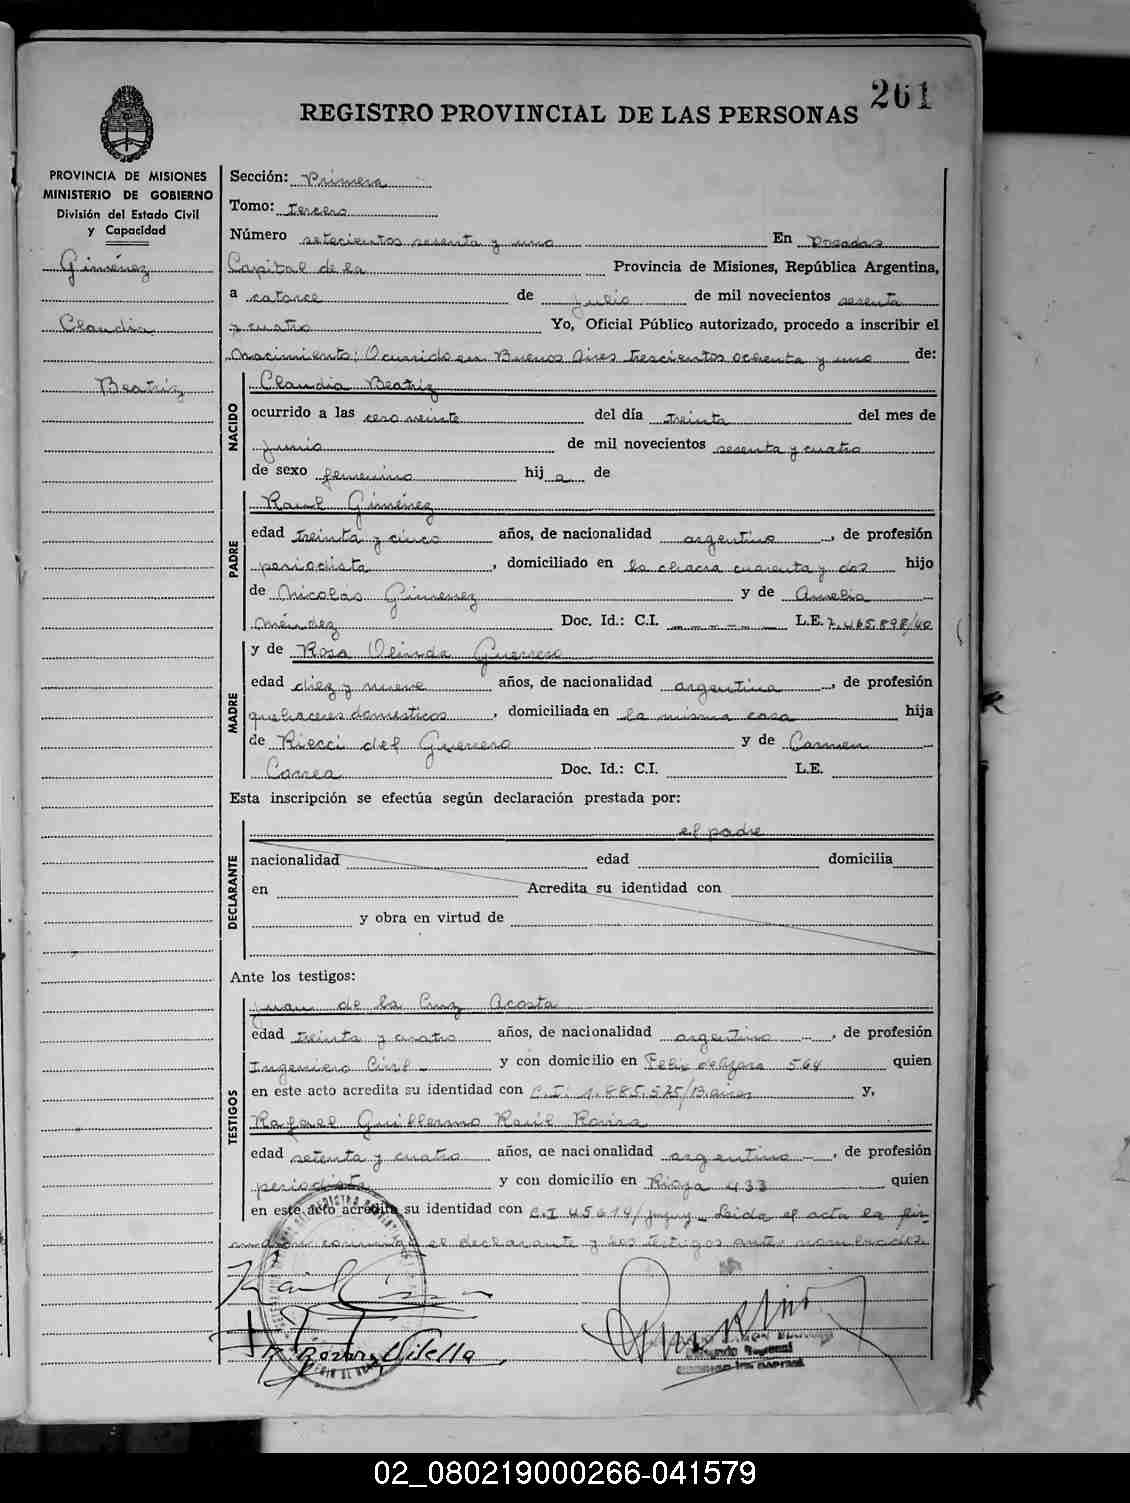 261
REGISTRO PROVINCIAL DE LAS PERSONAS
PROVINCIA DE MISIONES
MINISTERIO DE GOBIERNO
División del Estado Civil
y Capacidad
Giménez
Claudia
Beatriz
Sección: Primera
Tomo: tercero
Número setecientos sesenta y uno En Posadas
Capital de la Provincia de Misiones, República Argentina,
a catorce de julio de mil novecientos sesenta
y cuatro Yo, Oficial Público autorizado, procedo a inscribir el
Nacimiento: Ocurrido en Buenos Aires trescientos ochenta y uno de:
NACIDO
Claudia Beatriz
ocurrido a las cero veinte del día treinta del mes de
junio de mil novecientos sesenta y cuatro
de sexo femenino hij a de
PADRE
Raul Giménez
edad treinta y cinco años, de nacionalidad argentino, de profesión
periodista, domiciliado en la chacra cuarenta y dos hijo
de Nicolas Gimenez y de Amelia
Méndez Doc. Id.: C.I. — — — — — L.E. 7.465.898/40
MADRE
y de Rosa Olinda Guerrero
edad diez y nueve años, de nacionalidad argentina, de profesión
quehaceres domesticos, domiciliada en la misma casa hija
de Riecci del Guerrero y de Carmen
Correa Doc. Id.: C.I. L.E.
Esta inscripción se efectúa según declaración prestada por:
DECLARANTE
el padre
nacionalidad edad domicilia
en Acredita su identidad con
y obra en virtud de
Ante los testigos:
TESTIGOS
Juan de la Cruz Acosta
edad treinta y cuatro años, de nacionalidad argentino, de profesión
Ingeniero Civil y con domicilio en Felix de Azara 564 quien
en este acto acredita su identidad con C.I. 1.885.575/B.aires y,
Rafael Guillermo Raúl Rovira
edad setenta y cuatro años, de nacionalidad argentino, de profesión
periodista y con domicilio en Rioja 433 quien
en este acto acredita su identidad con C.I 45614/Jujuy. Leida el acta la fir-
man conmigo el declarante y los testigos antes nombrados
02_080219000266-041579